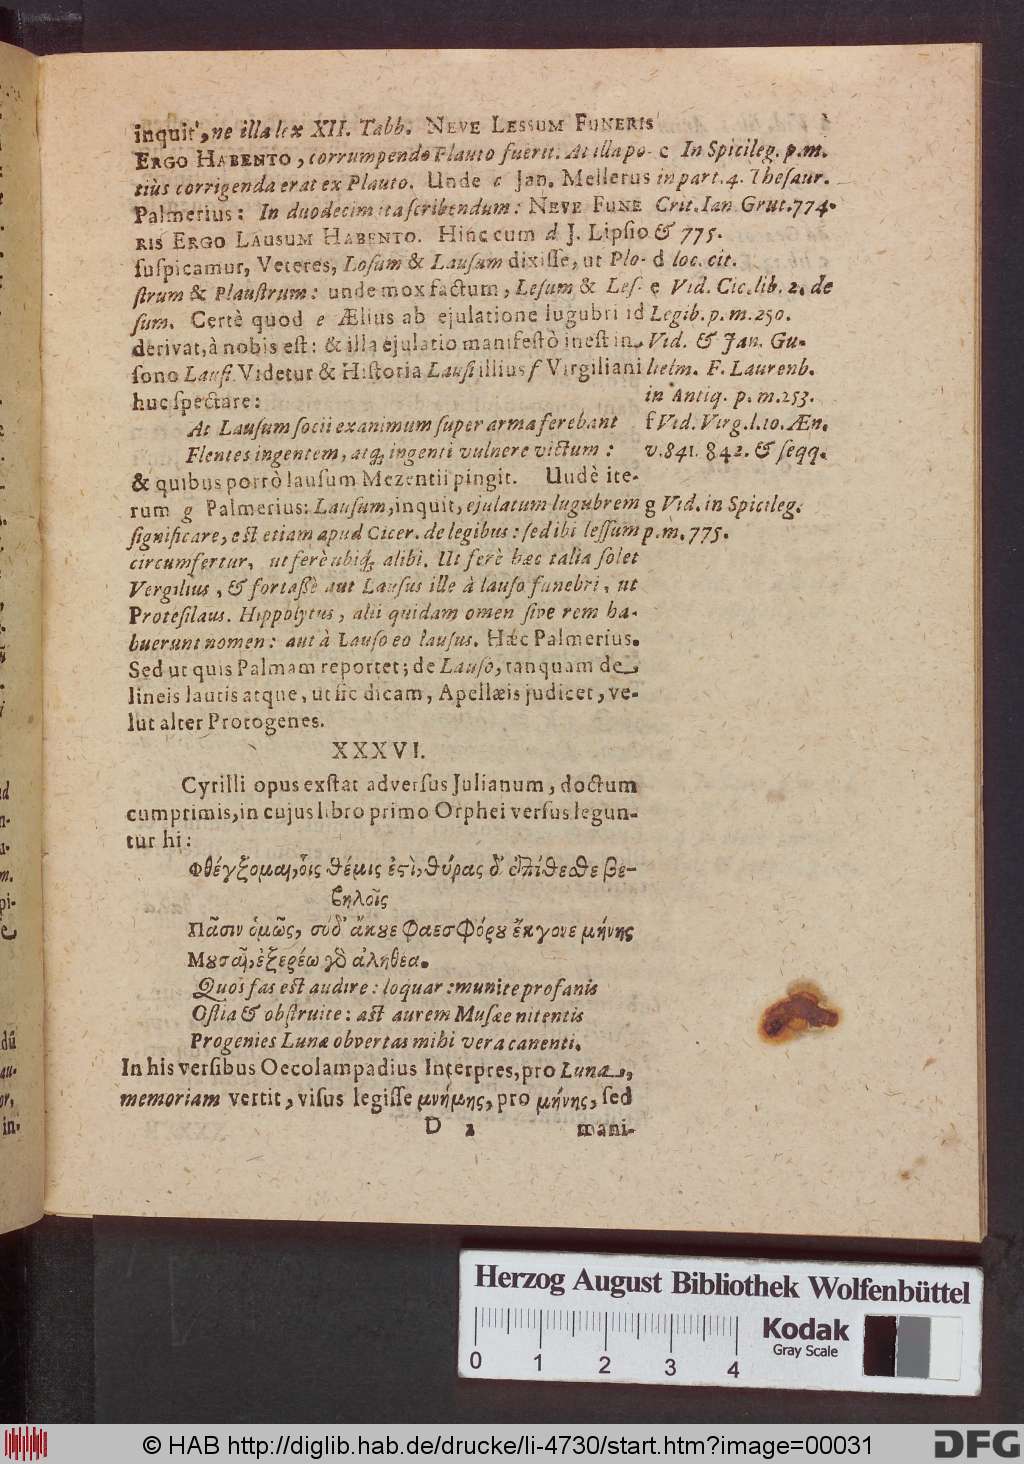 inquit, ne illa lex XII. Tabb. NEVE LESSUM FUNERIS
ERGO HABENTO, corrumpendo Plauto fuerit. At illa po-
tiùs corrigenda erat ex Plauto. Unde c Jan. Mellerus
Palmerius: In duodecim ita scribendum: NEVE FUNE
RIS ERGO LAUSUM HABENTO. Hinc cum d J. Lipsio
suspicamur, Veteres, Losum & Lausum dixisse, ut Plo-
strum & Plaustrum: unde mox factum, Lesum & Les-
sum. Certè quod e Ælius ab ejulatione lugubri id
derivat, à nobis est: & illa ejulatio manifestò inest in
sono Lausi. Videtur & Historia Lausi illius f Virgiliani
huc spectare:
At Lausum socii exanimum super arma ferebant
Flentes ingentem, atq; ingenti vulnere victum:
& quibus porrò lausum Mezentii pingit. Uudè ite-
rum g Palmerius: Lausum, inquit, ejulatum lugubrem
significare, est etiam apud Cicer. de legibus: sed ibi lessum
circumfertur, ut ferè ubiq; alibi. Ut ferè hæc talia solet
Vergilius, & fortassè aut Lausus ille à lauso funebri, ut
Protesilaus. Hippolytus, alii quidam omen sive rem ha-
buerunt nomen: aut à Lauso eo lausus. Hæc Palmerius.
Sed ut quis Palmam reportet; de Lauso, tanquam de
lineis lautis atque, ut sic dicam, Apellæis judicet, ve-
lut alter Protogenes.
c In Spicileg. p.m.
in part. 4. Thesaur.
Crit. Ian Grut. 774.
& 775.
d loc. cit.
e Vid. Cic. lib. 2. de
Legib. p. m. 250.
Vid. & Jan. Gu-
lielm. F. Laurenb.
in Antiq. p. m. 253.
f Vid. Virg. l. 10. Æn.
v. 841. 842. & seqq.
g Vid. in Spicileg.
p. m. 775.
XXXVI.
Cyrilli opus exstat adversus Julianum, doctum
cumprimis, in cujus libro primo Orphei versus legun-
tur hi:
Φθέγξομαι, οἷς θέμις ἐστὶ, θύρας δ' ἐπίθεσθε βε-
βηλοῖς
Πᾶσιν ὁμῶς, σὺ δ' ἄκουε Φαεσφόρου ἔκγονε μήνης
Μουσαῖ, ἐξερέω γὸ ἀληθέα.
Quos fas est audire: loquar: munite profanis
Ostia & obstruite: ast aurem Musæe nitentis
Progenies Lunæ obvertas mihi vera canenti.
In his versibus Oecolampadius Interpres, pro Luna,
memoriam vertit, visus legisse μνήμης, pro μήνης, sed
D 2 mani-
Herzog August Bibliothek Wolfenbüttel
0 1 2 3 4
Kodak
Gray Scale
© HAB http://diglib.hab.de/drucke/li-4730/start.htm?image=00031
DFG